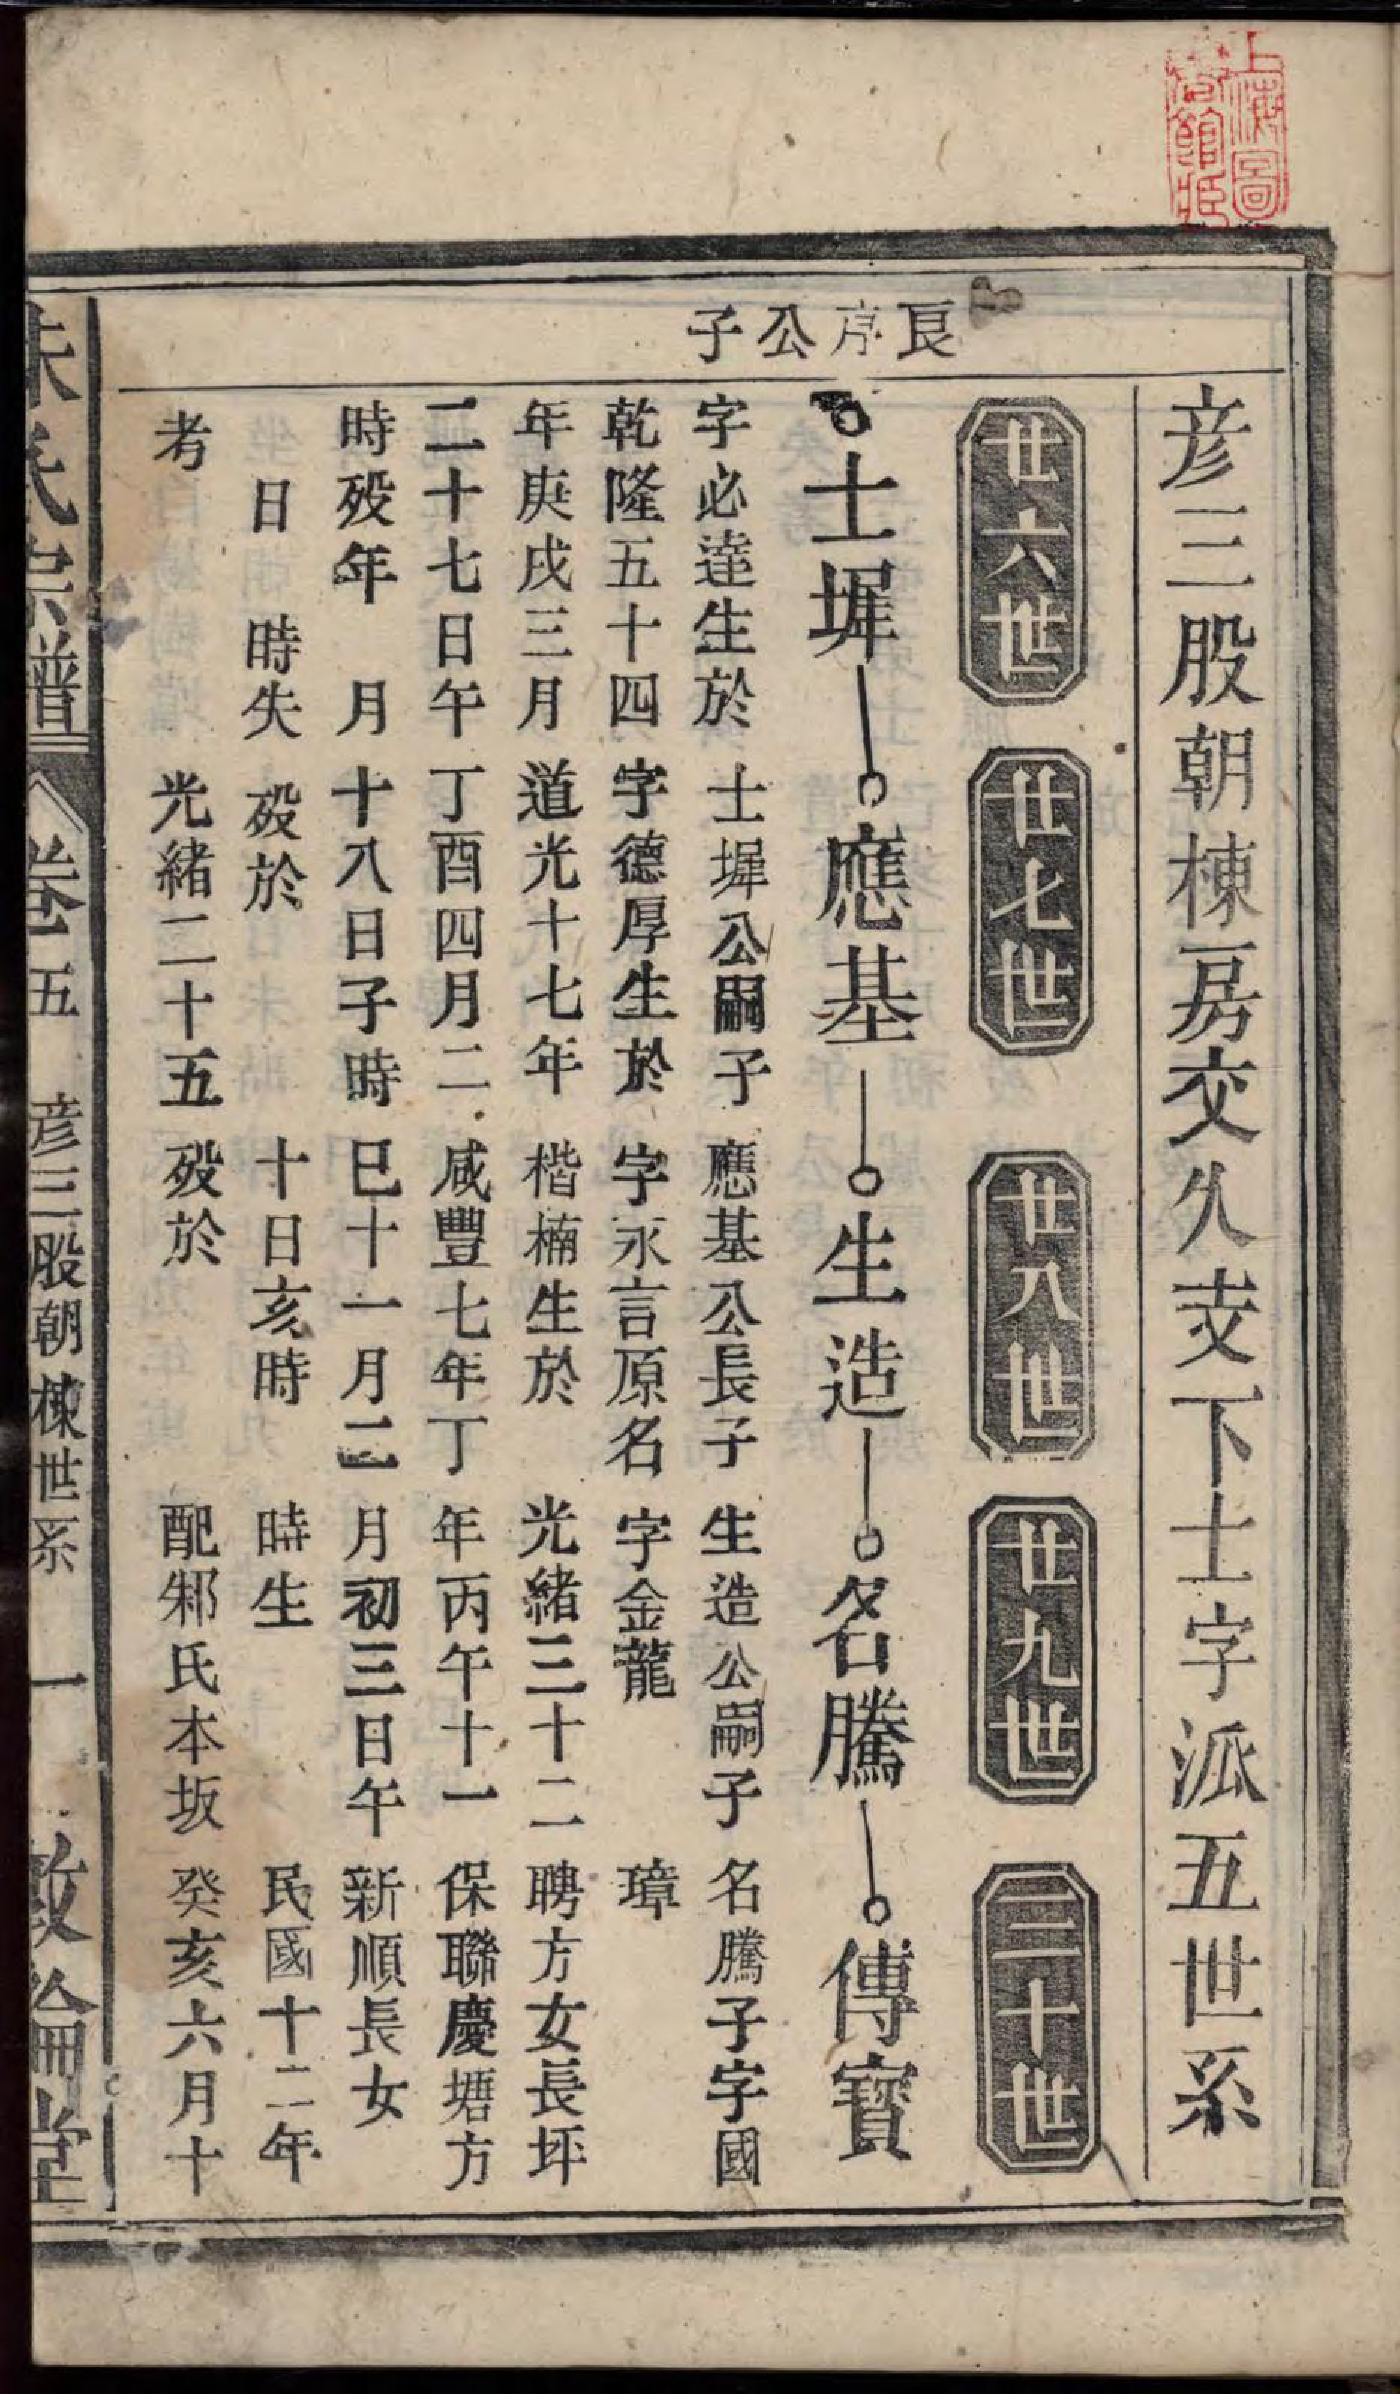 上海圖
書館藏
彦三股朝棟房交久支下士字派五世系
廿六世
廿七世
廿八世
廿九世
三十世
良序公子
士墀
應基
生造
名騰
傳寶
字必達生於
乾隆五十四
年庚戌三月
二十七日午
時殁年　月
日　時失
考
士墀公嗣子
字德厚生於
道光十七年
丁酉四月二
十八日子時
殁於
光緒二十五
應基公長子
字永言原名
楷楠生於
咸豐七年丁
巳十一月二
十日亥時
殁於
生造公嗣子
字金龍
光緒三十二
年丙午十一
月初三日午
時生
配邾氏本坂
名騰子字國
璋
聘方女長坪
保聯慶塘方
新順長女
民國十二年
癸亥六月十
朱氏宗譜
卷五
彦三股朝棟世系
一
敦倫堂